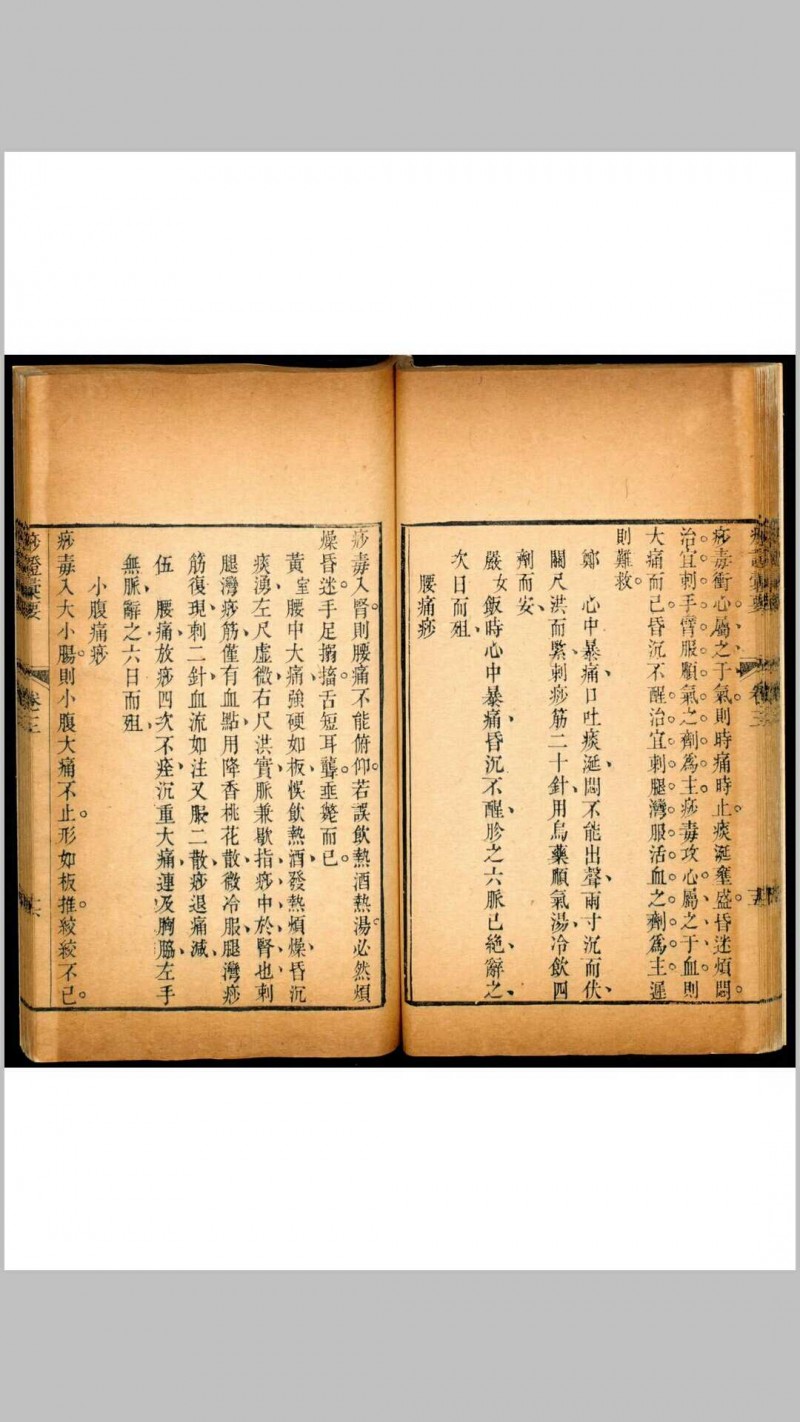 痧毒衝心屬之于氣則時痛時止。痰涎壅盛。昏迷煩悶。
治宜刺手臂服順氣之劑爲主。痧毒攻心屬之于血則
大痛而已。昏沉不醒。治宜刺腿灣。服活血之劑爲主。遲
則難救。
鄭　心中暴痛、口吐痰涎、悶不能出聲、兩寸沉而伏、
關尺洪而緊、刺痧筋二十針、用烏藥順氣湯、冷飲四
劑而安、
嚴女飯時心中暴痛、昏沉不醒、胗之六脈已絶、辭之、
次日而殂、
腰痛痧
痧毒入腎。則腰痛不能俯仰。若誤飲熱酒熱湯。必然煩
燥昏迷。手足搦搐。舌短耳聾。垂斃而已。
黃室腰中大痛、強硬如板、悞飲熱酒、發熱煩燥、昏沉
痰湧、左尺虛微、右尺洪實、脈兼歇指、痧中於腎也、刺
腿灣痧筋、僅有血點、用降香桃花散、微冷服、腿灣痧
筋復現、刺二針、血流如注、又服二散、痧退痛減、
伍　腰痛、放痧四次不痊、沉重大痛、連及胸脇、左手
無脈、辭之、六日而殂、
小腹痛痧
痧毒入大小腸。則小腹大痛不止。形如板推。絞絞不已。
痧證彙要
卷三